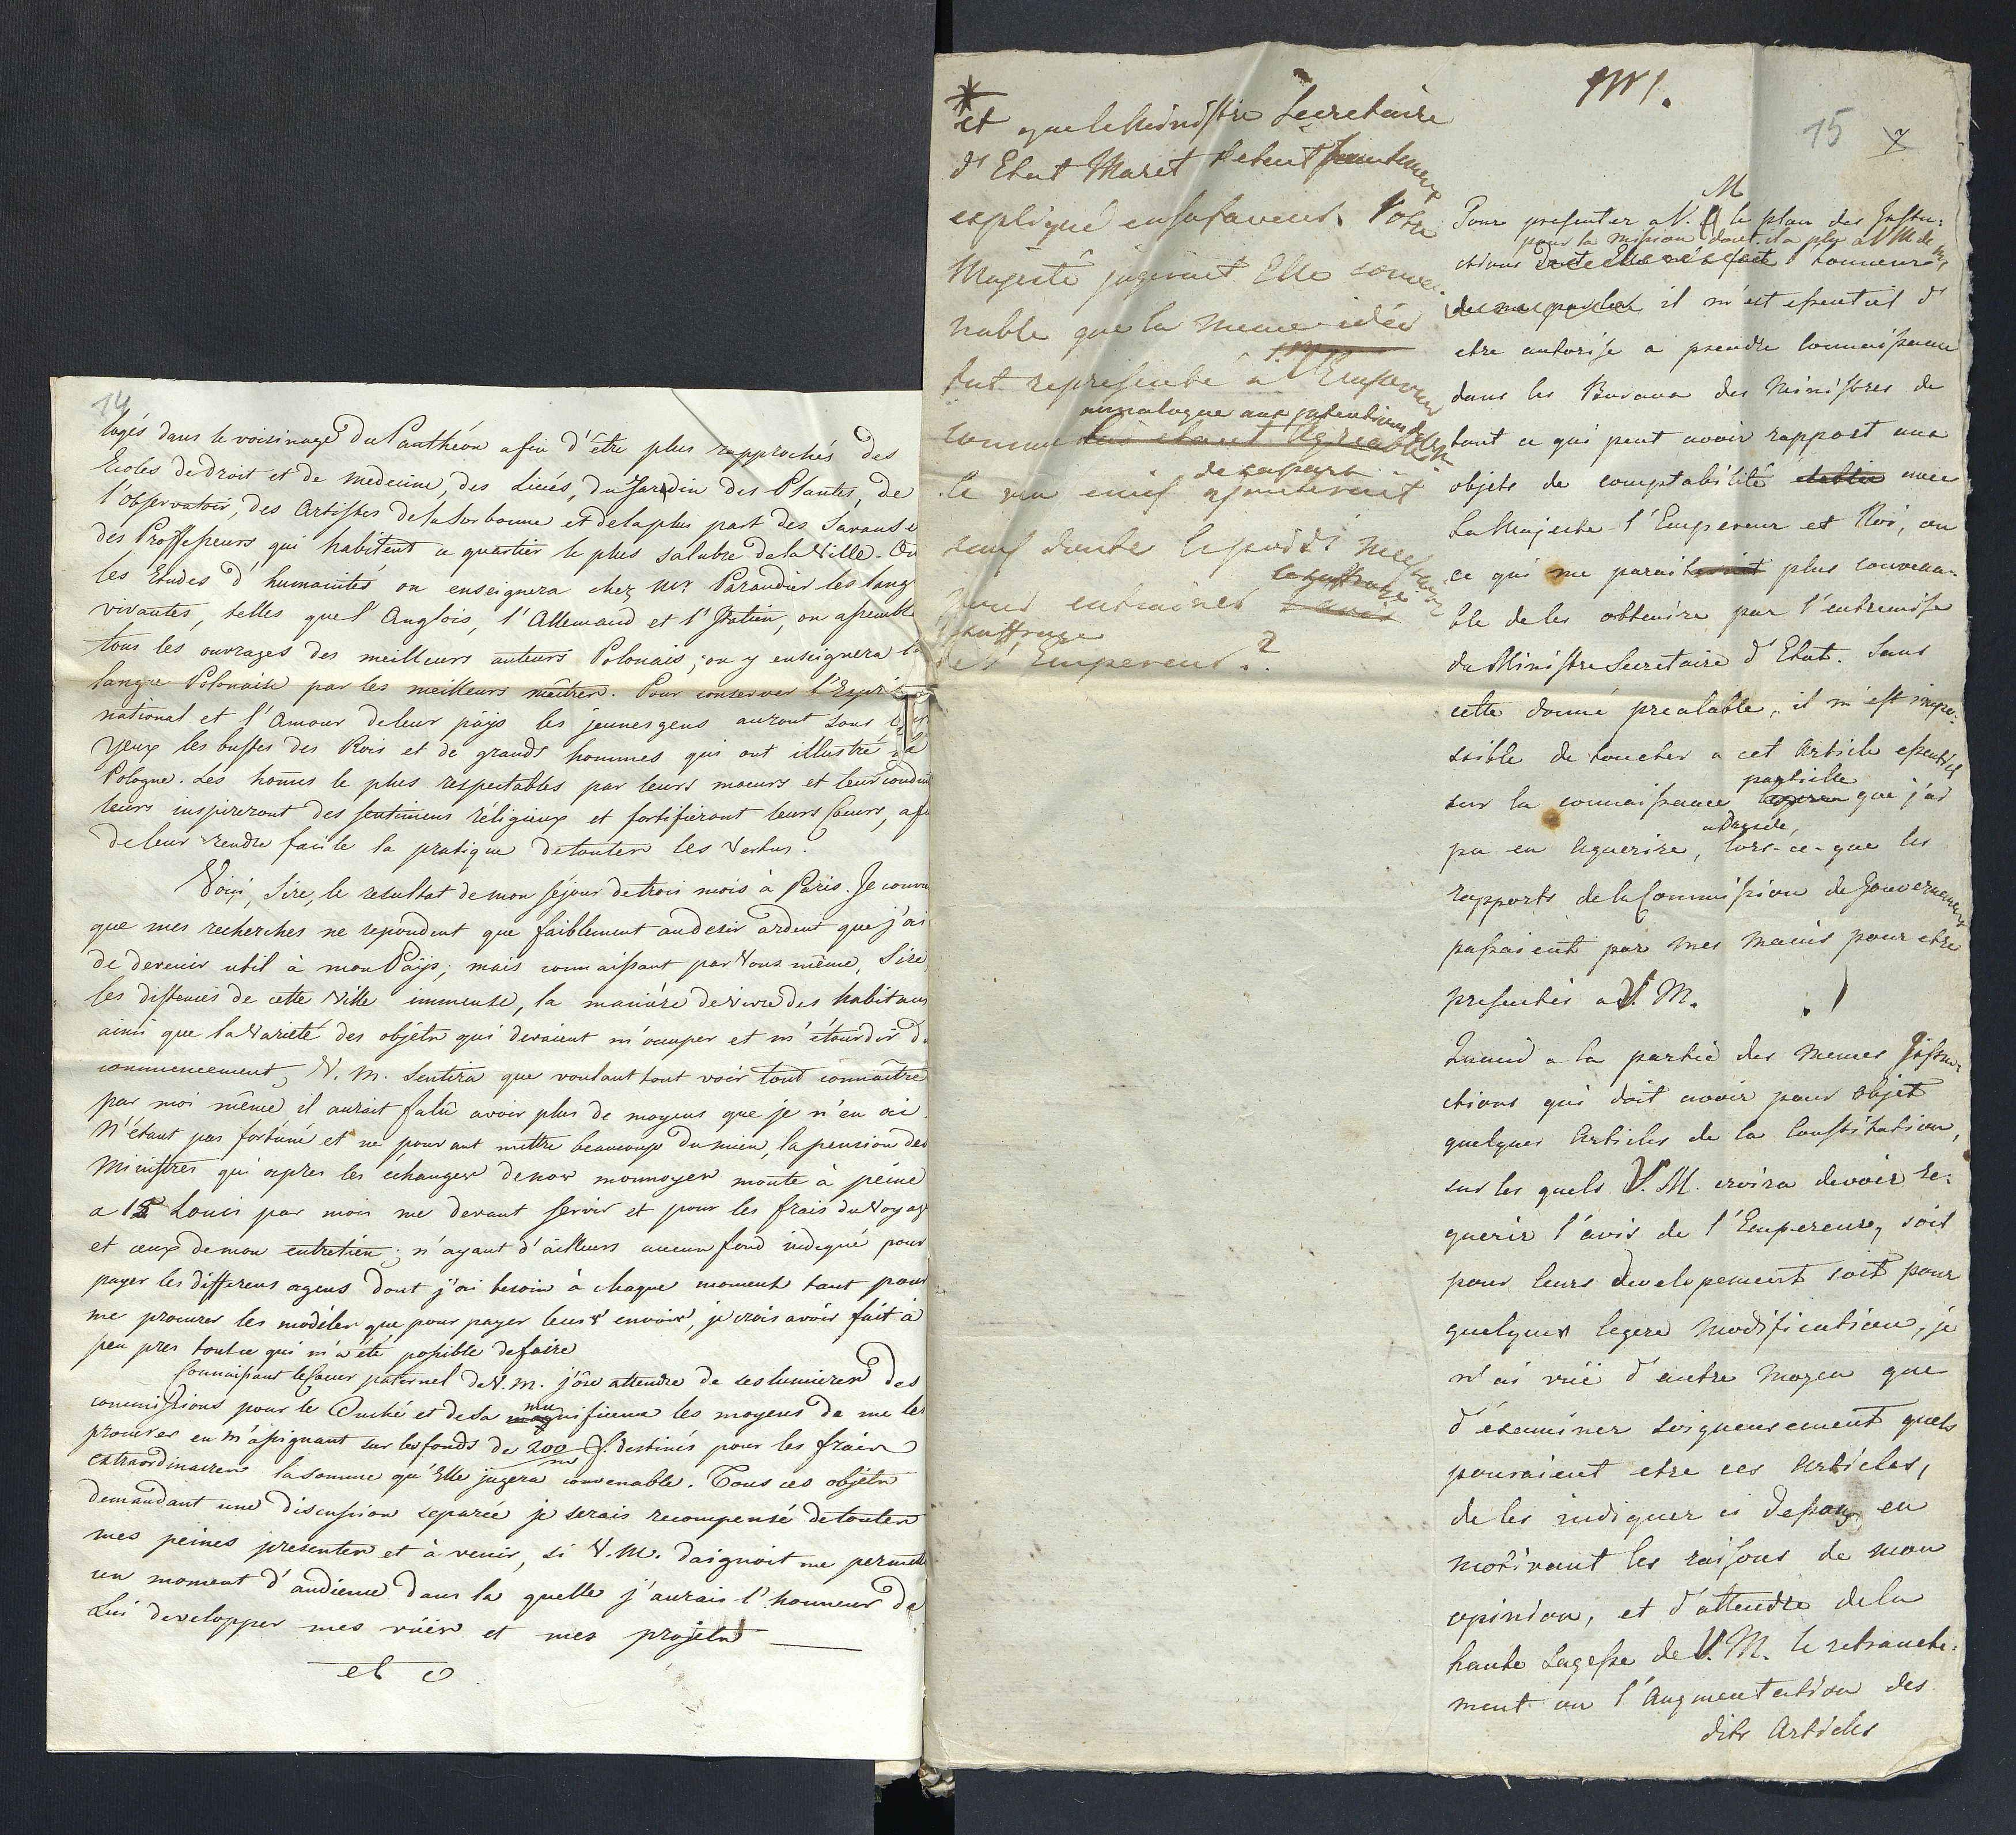 14
logés dans le voisinage du Panthéon afin d'être plus rapprochés des
Ecoles de droit et de medecine, des Licés, du Jardin des Plantes, de
l'observatoir, des Artistes de la Sorbonne et de la plus part des Savans e
des Proffesseurs qui habitent ce quartier le plus salubre de la Ville. Ou
les Etudes d'humanités on enseignera chez Mr. Parandier les lang
vivantes, telles que l'Anglois, l'Allemand et l'Italien, on assemble
tous les ouvrages des meilleurs auteurs Polonais; on y enseignera la
langue Polonaise par les meilleurs maîtres. Pour conserver l'Esprit
national et l'Amour de leur päys les jeunes gens auront sous les
yeux les bustes des Rois et de grands hommes qui ont illustré la
Pologne. Les homes le plus respectables par leurs moeurs et leur condui
leurs inspireront des sentimens réligieux et fortifieront leurs Coeurs, afi
de leur rendre facile la pratique de toutes les Vertus.
Voiçi, Sire, le resultat de mon séjour de trois mois à Paris. Je convie
que mes recherches ne repondent que faiblement au desir ardent que j'ai
de devenir util à mon Païs; mais connaissant par Vous même, Sire,
les distences de cette Ville immense, la maniére de vivre des habitans
ainsi que la Varieté des objéts qui devaient m'occuper et m'étourdir d.
commencement, V. M. sentira que voulant tout voir tout connaître
par moi même il aurait falu avoir plus de moyens que je n'en ai
N'étant pas fortuné et ne pouvant mettre beaucoup du mien, la pension des
Ministres qui apres les échanges de nos monnoyes monte à peine
a 15 Louis par mois me devant servir et pour les frais du Voyag
et ceux de mon entretien; n'ayant d'ailleurs aucun fond indiqué pour
payer les differens agens dont j'ai besoin à chaque moment tant pour
me procurer les modéles que pour payer leurs envois, je crois avoir fait à
peu pres tout ce qui m'a été possible de faire
Connaissant le Coeur paternel de V. M. j'ose attendre de ses lumieres des
commissions pour le Duché et de sa munificence les moyens de me les
procurer en m'assignant sur les fonds de 200 m f. destinés pour les frais
extraordinaires la somme qu'Elle jugera convenable. Tous ces objéts
demandant une discussion separée je serais recompensé de toutes
mes peines presentes et à venir, si V. M. daignoit me permett
un moment d'audience dans la quelle j'aurais l'honneur de
Lui developper mes vües et mes projéts
et c
*
et que le Ministre Secretaire
d'Etat Maret s'etait hautement
expliqué en sa faveur. Votre
Majesté jugerait Elle conve-
nable que la meme idée
fut representée à S. M. l'Empereur
annalogue aux intentions de
comme lui etant agreable
de sa part
ajouterait
sans doute le poids necessaire
pour entrainer le suffrage
suffrage
de l'Empereur.?
15
7
M
Pour presenter a V. le plan des Instru-
pour la mission dont il a plu a V M de m
ctions dont Elle m'a fait honneur
de me parler il m'est essentiel d'
etre autorisé a prendre connaissance
dans les Buraux des Ministres de
tout ce qui peut avoir rapport aux
objets de comptabilité etablie avec
Sa Majesté l'Empereur et Roi, ou
ce qui me parait plus convena-
ble de les obtenire par l'entremise
du Ministre Secretaire d'Etat. Sans
cette donné prealable, il m'est impo-
ssible de toucher a cet Article essentiel
partielle
sur la connaissance legere que j'ai
a Dresde,
pu en aquerire, lors-ce-que les
rapports de la Commission de Gouvernement
passaient par mes mains pour etre
presentés a V. M.
Quand a la partie des memes Instru-
ctions qui doit avoir pour objet
quelques Articles de la Constitution,
sur les quels V. M. croira devoir re-
querir l'avis de l'Empereur, soit
pour leurs developement soit pour
quelques legere modification, je
n'ai vüe d'autre moyen que
d'examiner soigneusement quels
pouraient etre ces Articles,
de les indiquer ci dessous en
motivant les raisons de mon
opinion, et d'attendre de la
haute Sagesse de V. M. le retranche-
ment ou l'Augmentation des
dits Articles